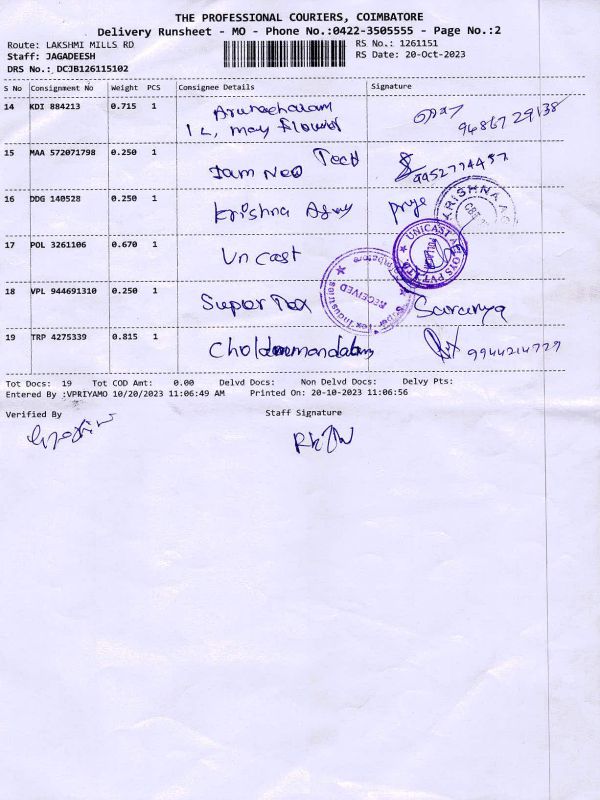 THE PROFESSIONAL COURIERS, COIMBATORE
Delivery Runsheet - MO - Phone No.:0422-3505555 - Page No.:2
Route: LAKSHMI MILLS RD RS No.: 1261151
Staff: JAGADEESH RS Date: 20-Oct-2023
DRS No.: DCJB126115102
S No Consignment No Weight PCS Consignee Details Signature
14 KDI 884213 0.715 1 Arunachalam
1L, may flower 94867 29138
15 MAA 572071798 0.250 1 Iam Neo Tech 9952774457
16 DDG 140528 0.250 1 Krishna Agny priya
KRISHNA AG
CBE
17 POL 3261106 0.670 1 Un cast
UNICAST PVT LTD
18 VPL 944691310 0.250 1 Super Tex Saranya
Super Tex Industries RECEIVED
19 TRP 4275339 0.815 1 9944214727
Tot Docs: 19 Tot COD Amt: 0.00 Delvd Docs: Non Delvd Docs: Delvy Pts:
Entered By :VPRIYAMO 10/20/2023 11:06:49 AM Printed On: 20-10-2023 11:06:56
Verified By Staff Signature